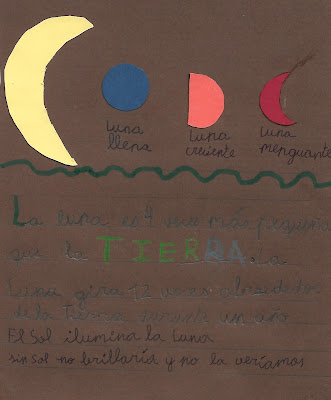 Luna
llena
Luna
creciente
Luna
menguante
La luna es 4 veces más pequeña
que la TIERRA. La
Luna gira 12 veces alrededor
de la Tierra durante un año
El Sol ilumina la Luna
sin Sol no brillaría y no la veríamos